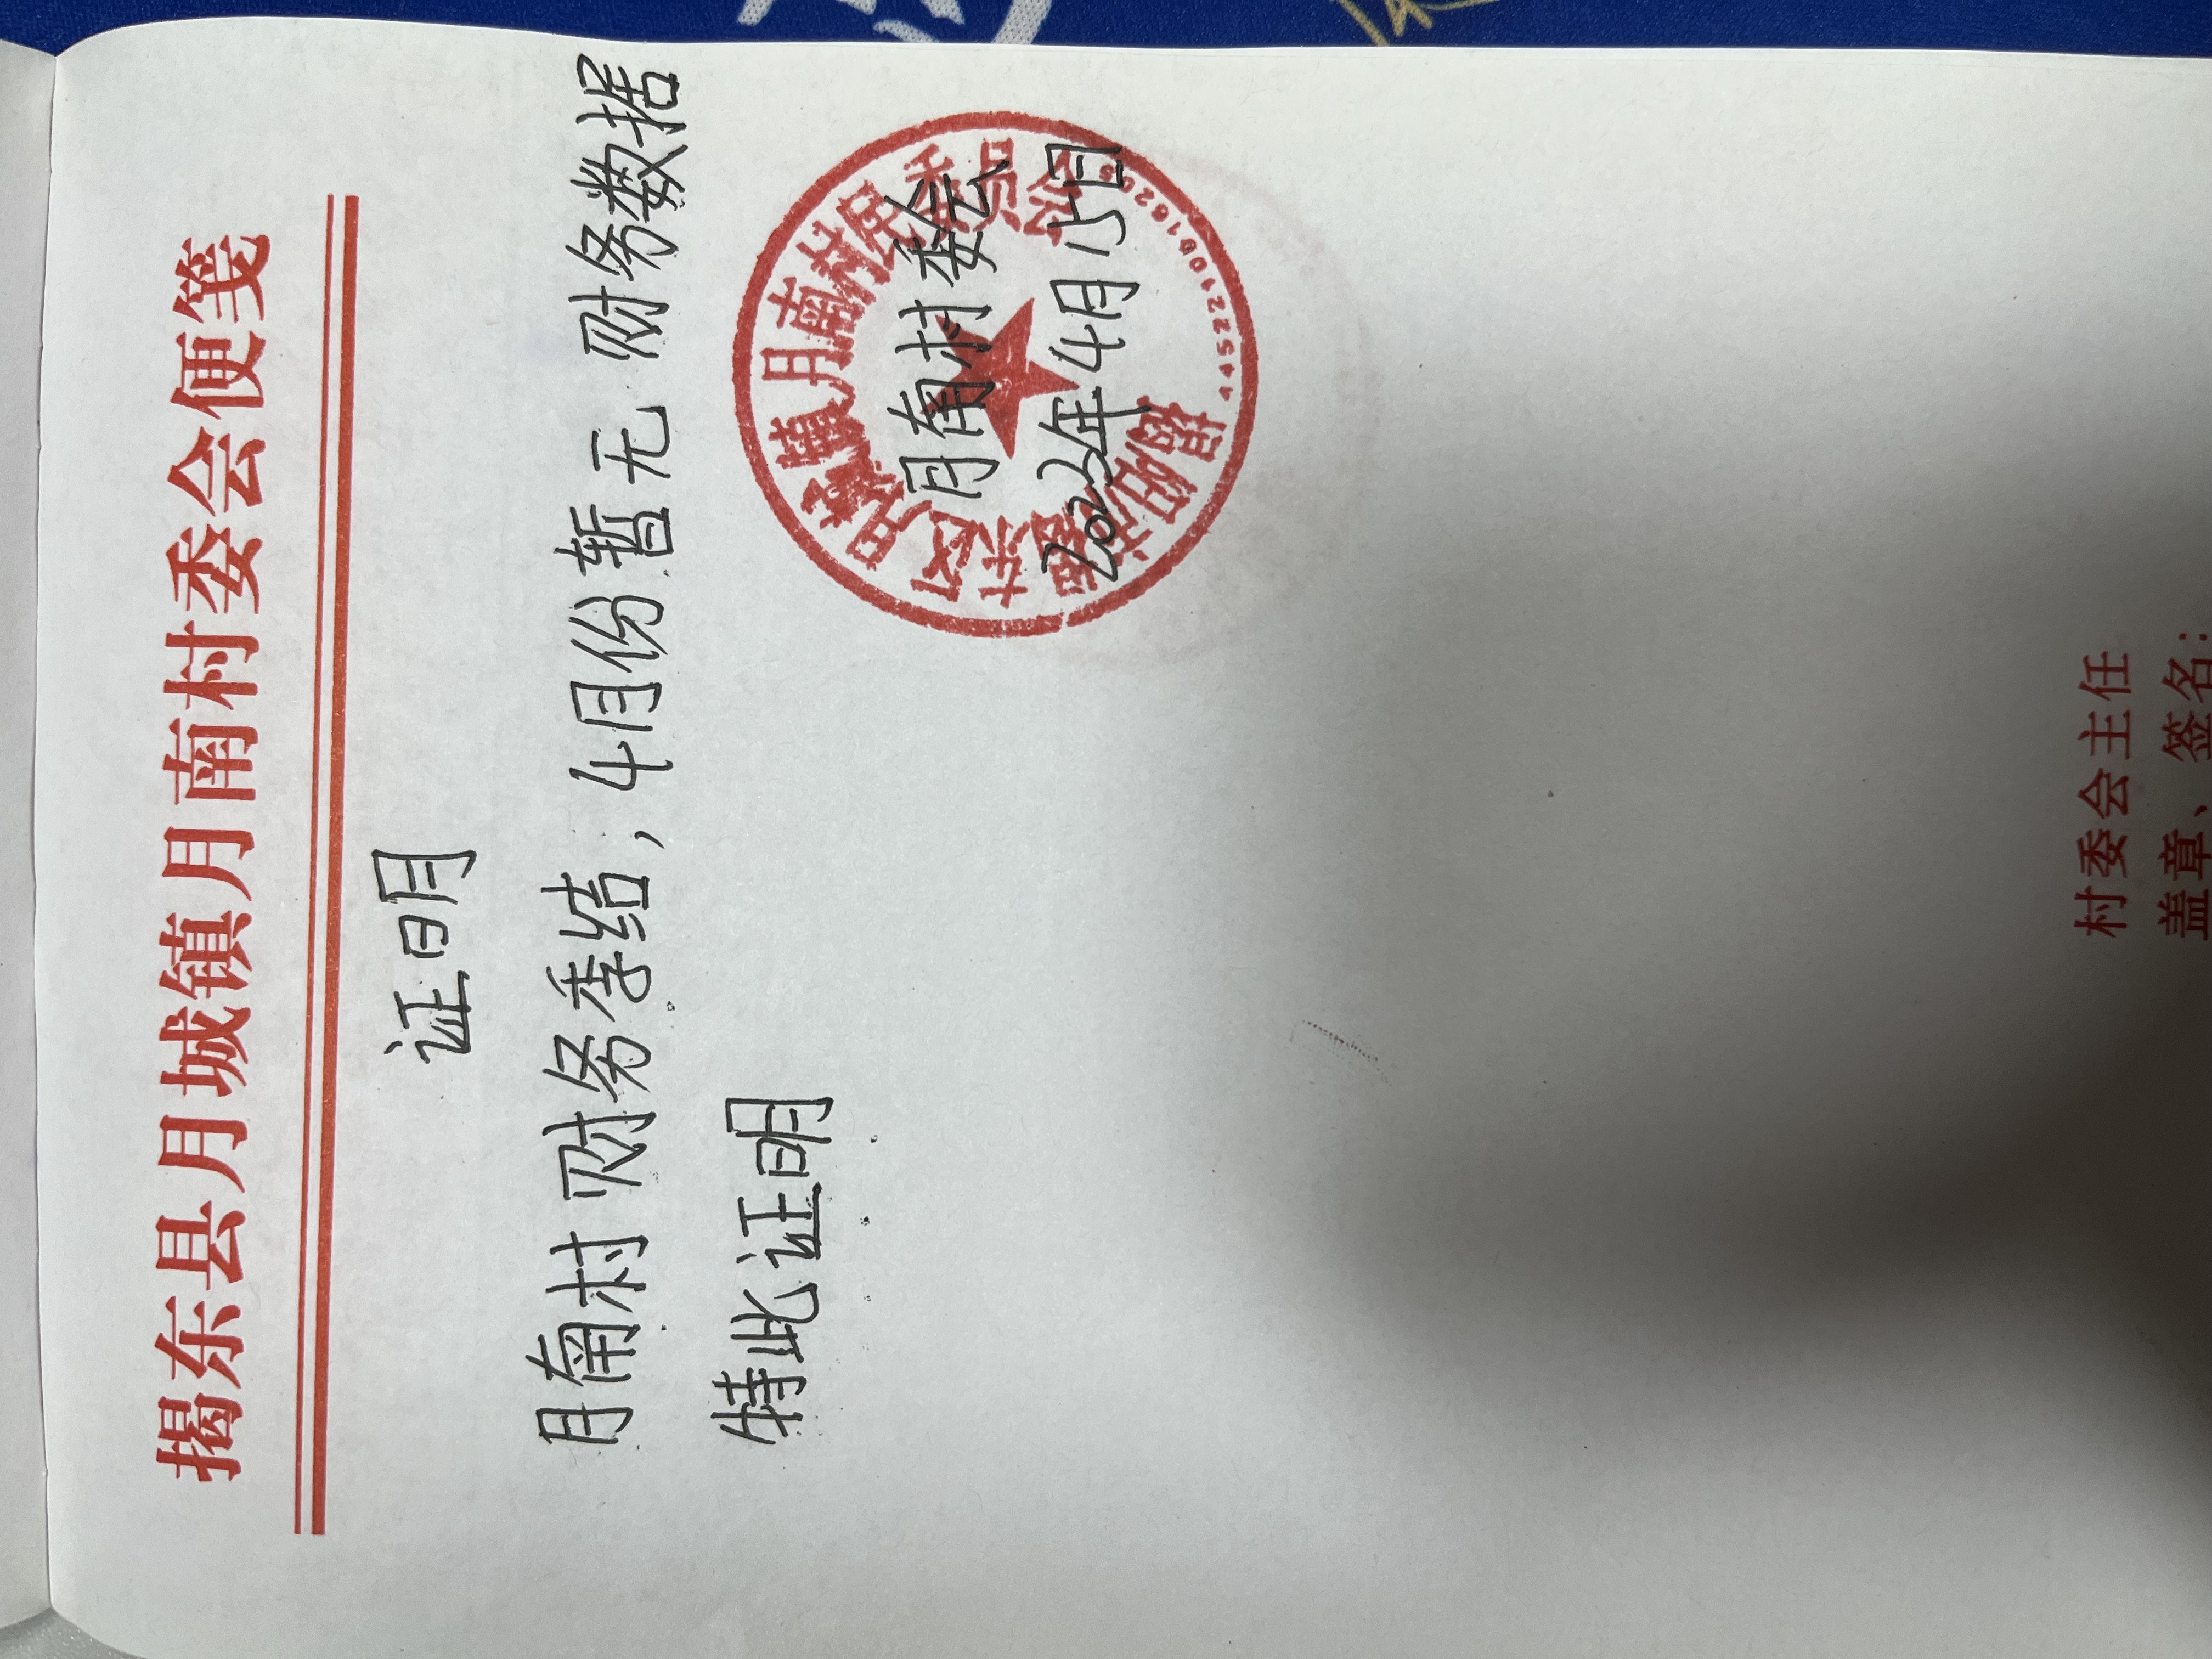 揭东县月城镇月南村委会便笺
证明
月南村财务季结，4月份暂无财务数据
特此证明
月南村委会
2022年4月15日
揭阳市揭东区月城镇月南村民委员会
村委会主任
盖章、签名：